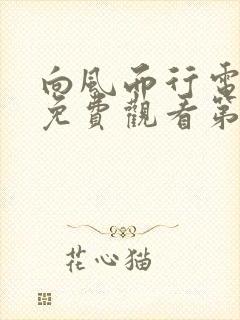 向風而行電
免費觀看第
花心猫